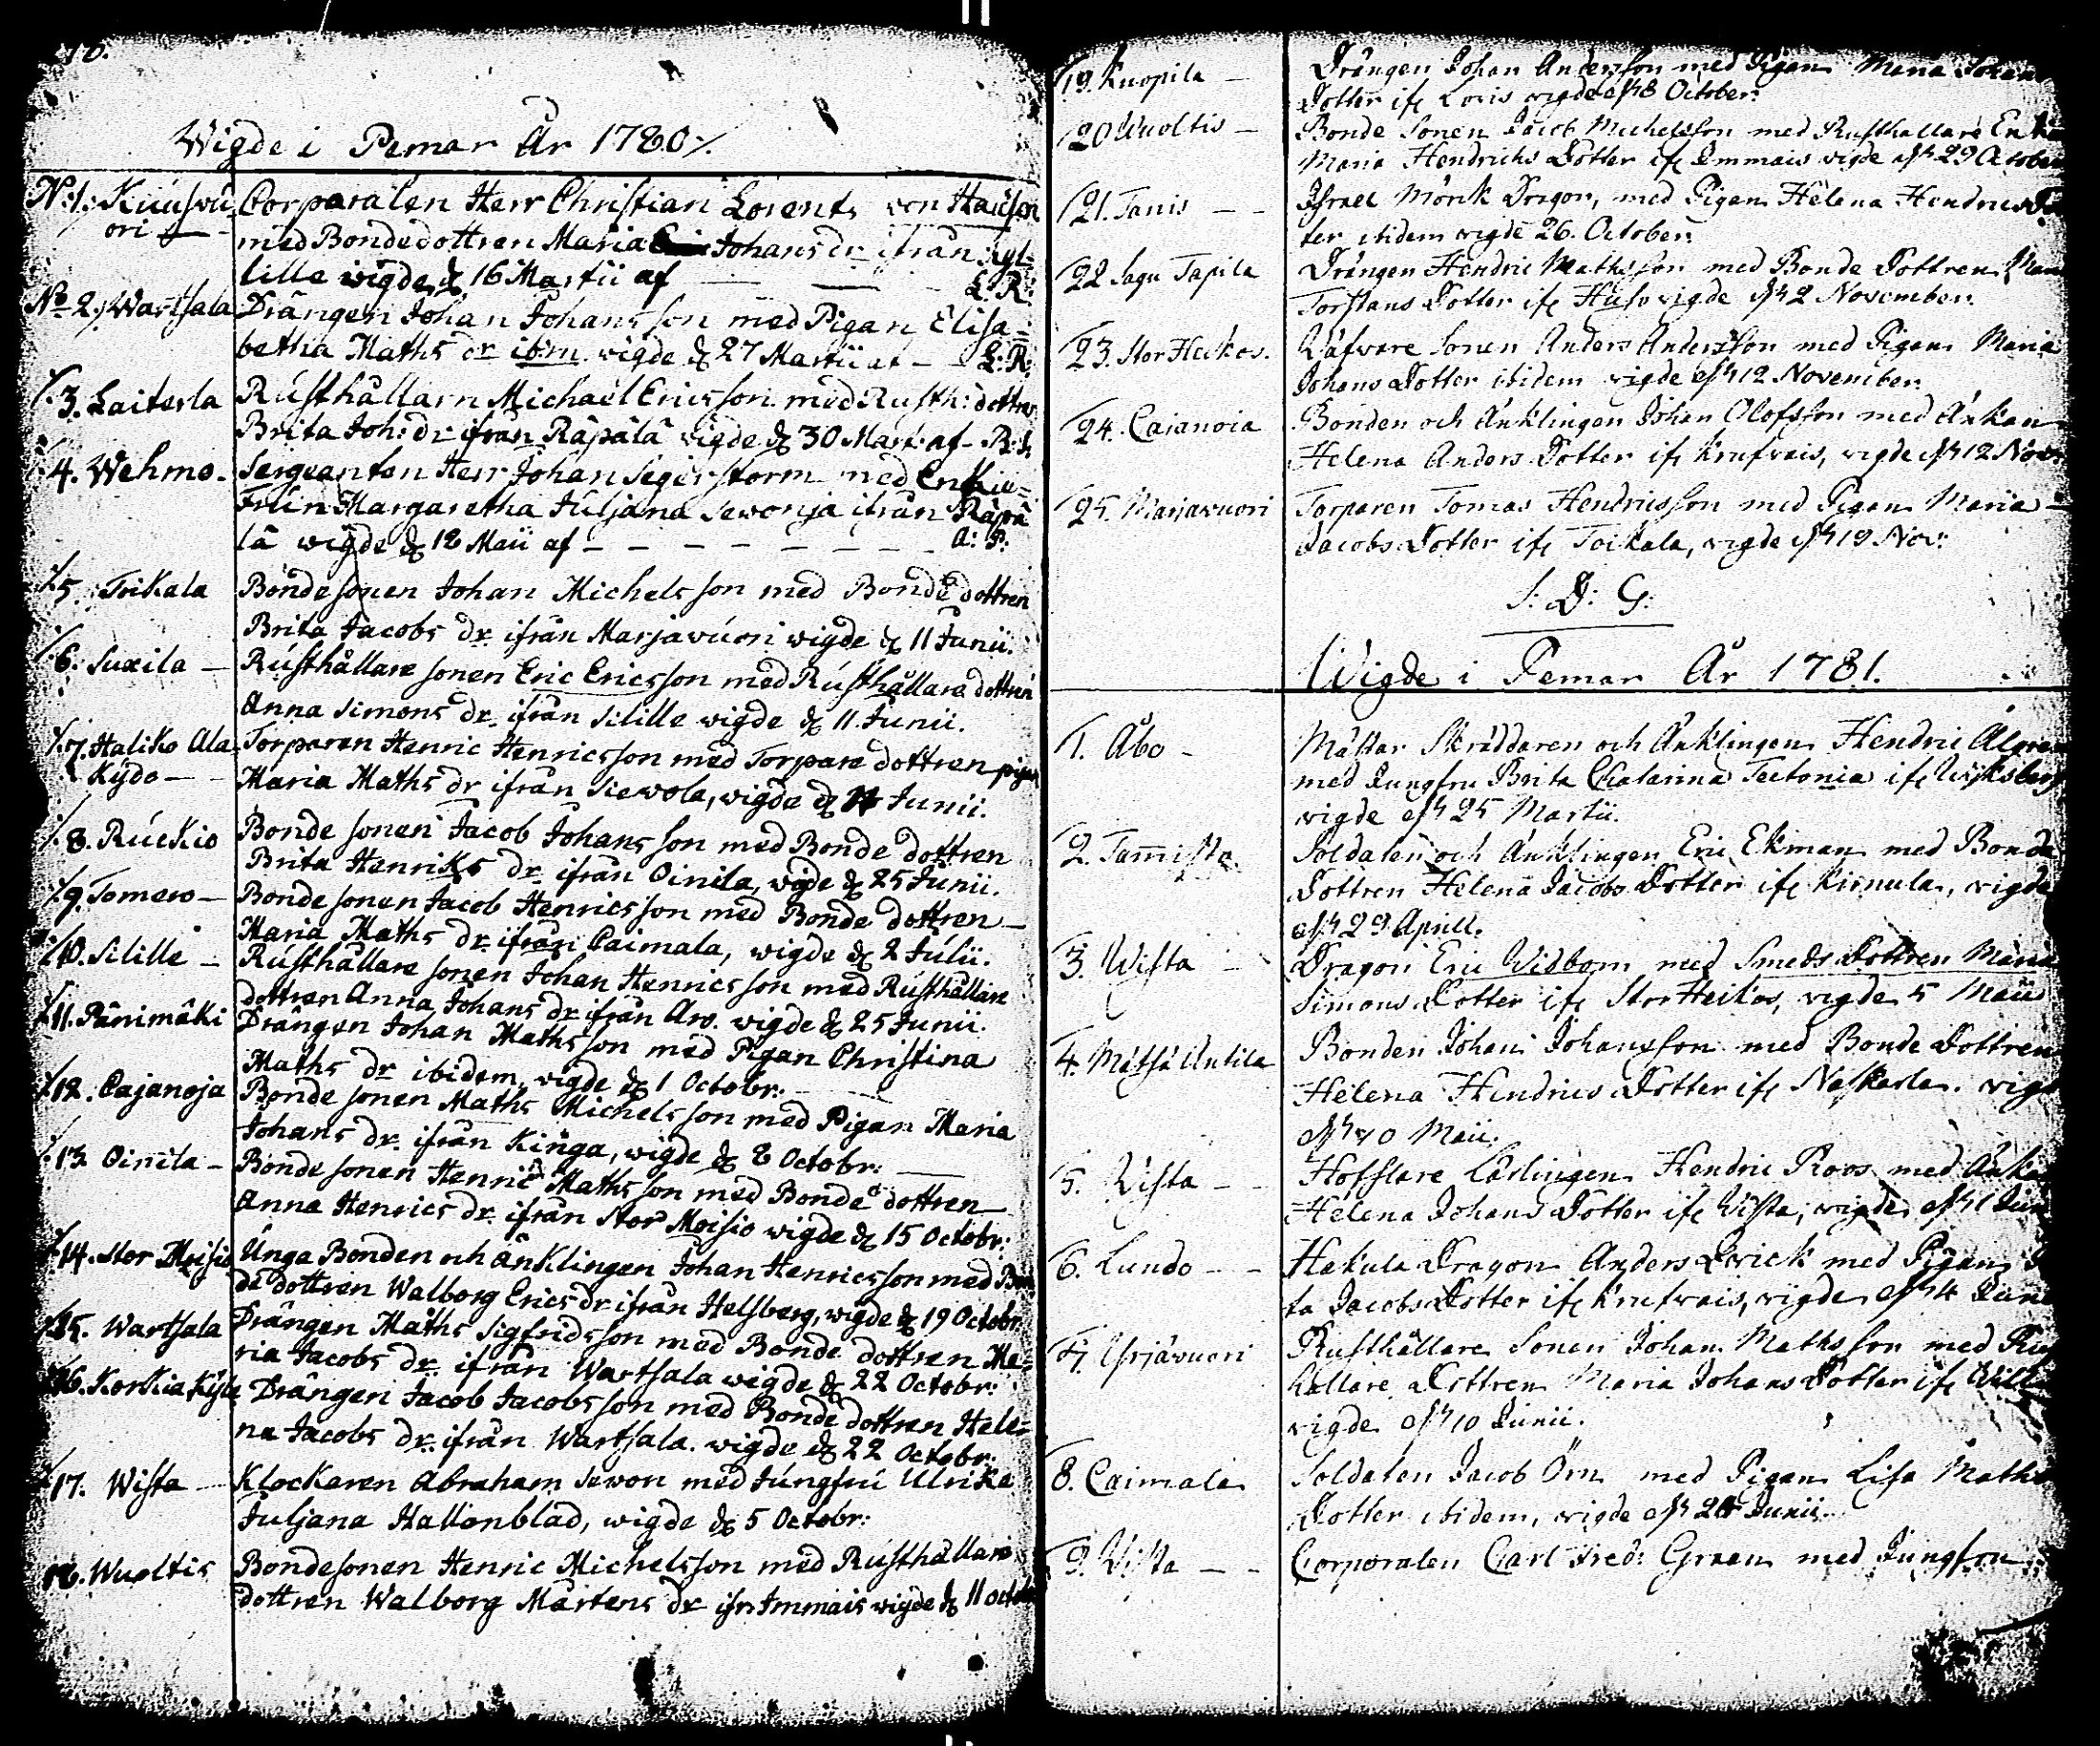 70.
Wigde i Pemar År 1780⁒
N:1. Kuusvu Corporalen Herr Christian Lorents von Hausen
ori med Bondedottren Maria Johans dr ifrån
lille wigde d 16 Martii af L:R:
No 2. Wartsala Drängen Johan Johansson med Pigan Elisa-
betha Maths dr ibm wigde d 27 Martii af L:R:
3. Laiterla Rusthållarn Michaël Ericsson med Rusth: dottren
Brita Joh: dr ifrån Räpälä wigde d 30 Mart: af
4. Wehmo. Sergeanten Herr Johan Segerstorm med Enkie-
Fruin Margaretha Juljana Sevonja ifrån Räpä
lä wigde d 18 Maii af A: P:
5. Toikala Bondesonen Johan Michelsson med Bonde dottren
Brita Jacobs dr ifrån Marjavuori wigde d 11 Junii.
6. Suxila Rusthållare sonen Eric Ericsson med Rusthållare dottren
Anna Simons dr ifrån Silille wigde d 11 Junii.
7. Haliko Ala Torparen Henric Henricsson med Torpare dottren pigan
Kydo Maria Maths dr ifrån Siewola, wigde d Junii.
8. Ruckio Bonde sonen Jacob Johansson med Bonde dottren
Brita Henriks dr ifrån Oinila, wigde d 25 Junii.
9. Tomero Bonde sonen Jacob Henricsson med Bonde dottren
Maria Maths dr ifrån Caimala, wigde d 2 Julii.
10. Silille Rusthållare sonen Johan Henricsson med Rusthållare
dottren Anna Johans dr ifrån Aro. wigde d 25 Junii.
11. Pänimäki Drängen Johan Mathsson med Pigan Christina
Maths dr ibidem, wigde d 1 Octobr:
12. Cajanoja Bonde sonen Maths Michelsson med Pigan Maria
Johans dr ifrån Kinga, wigde d 8 Octobr:
13. Oinila Bonde sonen Henric Mathsson med Bonde dottren
Anna Henrics dr ifrån Stor Moisio wigde d 15 Octobr:
14. Stor Moisio Unga Bonden och änklingen Johan Henricsson med Bon
de dottren Walborg Erics dr ifrån Helsberg, wigde d 19 Octobr:
15. Wartsala Drängen Maths Sigfridsson med Bonde dottren Ma-
ria Jacobs dr ifrån Wartsala wigde d 22 Octobr:
16. Korkia Kyle Drängen Jacob Jacobsson med Bonde dottren Hele-
na Jacobs dr ifrån Wartsala. wigde d 22 Octobr:
17. Wista Klockaren Abraham Sevon med Jungfru Ulrika
Juljana Hallonblad, wigde d 5 Octobr:
18. Wuoltis Bondesonen Henric Michelsson med Rusthållare
dottren Walborg Mårtens dr ifr: Immais wigde d 11 octob
19. Kuopila Drängen Johan Andersson med Pigan Maria Johan
Dotter ifr Loris wigde d 8 October.
20 Wuoltis Bonde Sonen Jacob Michelsson med Rusthållare Enkan
Maria Hendrichs Dotter ifr Immais wigde d 29 October
21. Tanis Israel Mörck Dragon, med Pigan Helena Hendrics Dot
ter ibidem wigde 26. October.
22 Sagu Tapila Drängen Hendric Mathsson med Bonde Dottren Mari
Torstans Dotter ifr Huso wigde d 2 November.
23. Stor Heikos. Anders Andersson med Pigan Maria
Johans Dotter ibidem wigde d 12 November.
24. Caianoia Bonden och Änklingen Johan Olofsson med Änkan
Helena Anders Dotter ifr Krufvais, wigde d 12 Nov:
25. Marjavuori Torparen Tomas Hendricsson med Pigan Maria
Jacobs Dotter ifr Toikala, wigde d 19 Nov:
S: D: G:
Wigde i Pemar År 1781.
1. Åbo Mästar Skräddaren och Änklingen Hendric Algren
med Jungfru Brita Chatarina Teetonia ifr Wiksberg
wigde d 25 Martii.
2. Tammisto Soldaten och Änklingen Eric Ekman med Bonde
Dottren Helena Jacobs Dotter ifr Kirnula, wigde
d 29 Aprill.
3. Wista Dragon Eric Widbom med Smeds Dottren Maria
Simons Dotter ifr Stor Heikos, wigde 5 Maii
4. Mätsä Antila Bonden Johan Johansson med Bonde Dottren
Helena Hendrics Dotter ifr Naskarla. wigde
d 10 Maii.
5. Wista Hofslare Lärlingen Hendric Roos med Änkan
Helena Johans Dotter ifr Wista, wigde d 1 Jun
6. Lundo Hakula Dragon Anders Qvick med Pigan
ta Jacobs Dotter ifr Krufvais, wigde d 4 Junii
7. Ysrjävuori Rusthållare Sonen Johan Mathsson med Rus
hållare Dottren Maria Johans Dotter ifr Will
wigde d 10 Junii.
8. Caimala Soldaten Jacob Örn med Pigan Lisa Maths
Dotter ibidem, wigde d 24 Junii.
9. Wista Corporalen Carl Fred: Graen med Jungfru